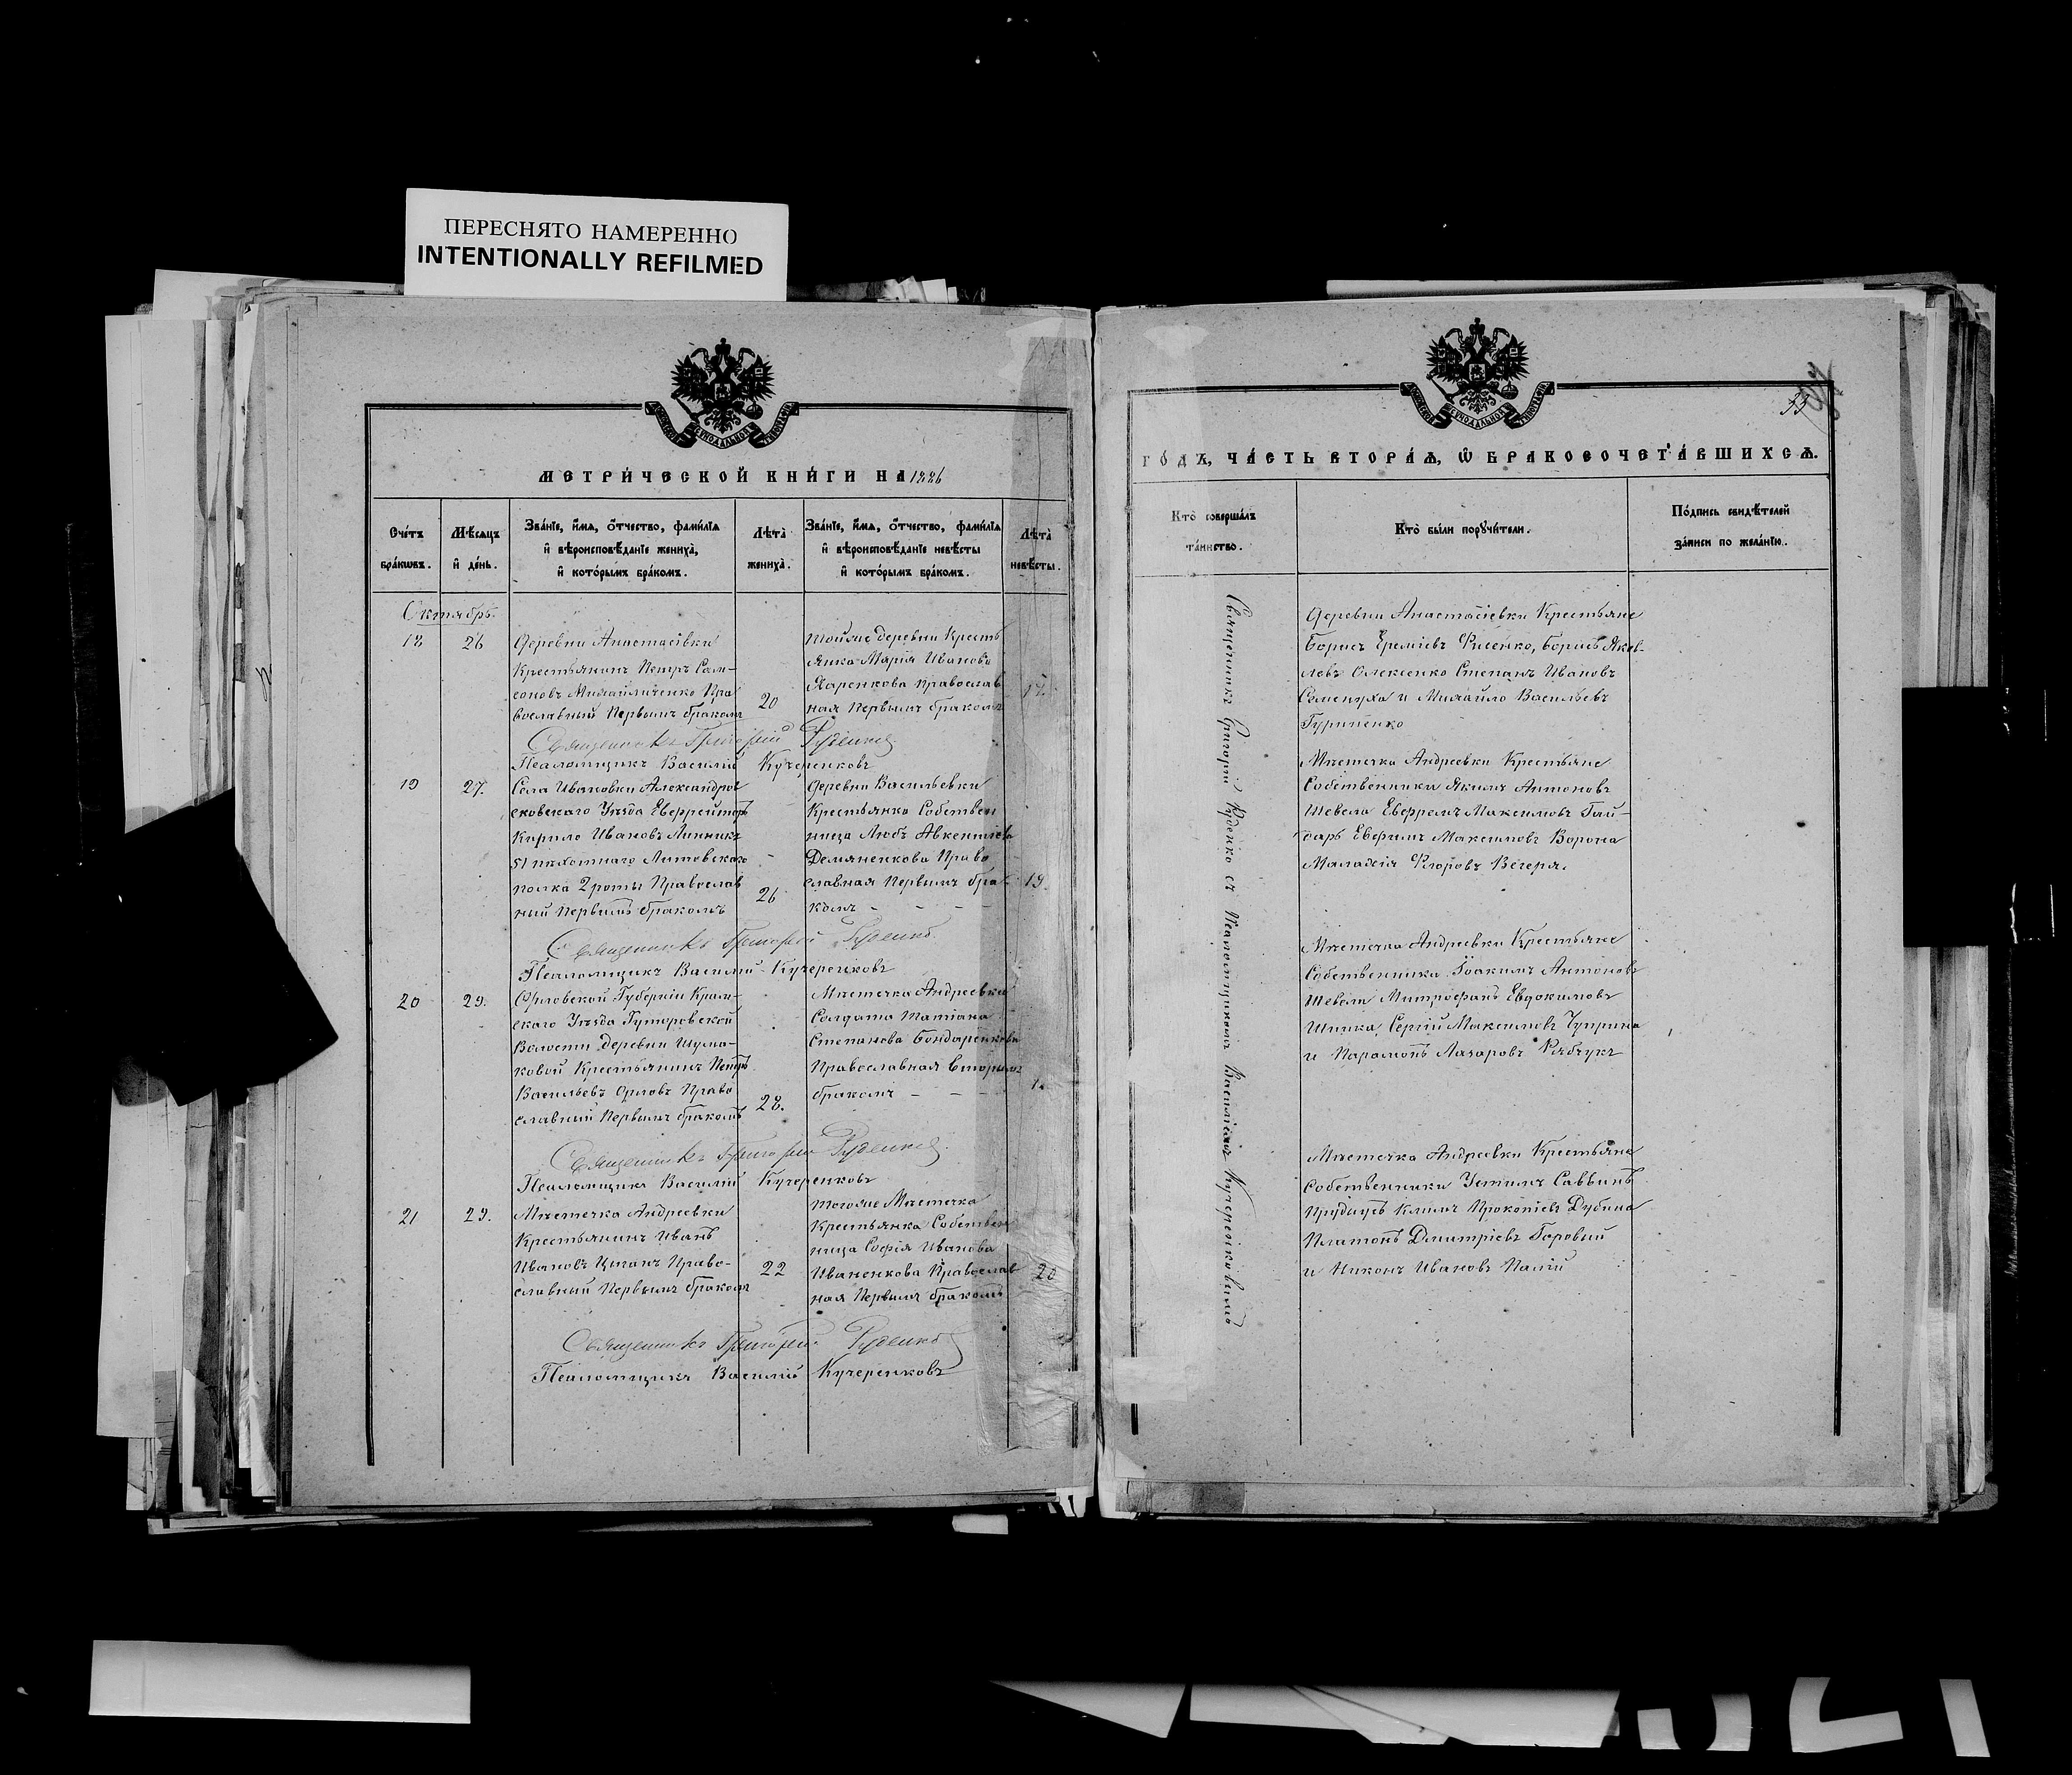 ПЕРЕСНЯТО НАМЕРЕННО
INTENTIONALLY REFILMED
МЕТРИ́ЧЕСКОЙ КНИ́ГИ НА 1886
Сче́тъ бра́кѡвъ.
Мѣ́сѧцъ и҆ де́нь.
Зва́нїе, и҆́мѧ, ѻ҆́тчество, фами́лїѧ
и҆ вѣроисповѣ́данїе жениха̀,
и҆ кото́рымъ бра́комъ.
Лѣта̀ жениха̀.
Зва́нїе, и҆́мѧ, ѻ҆́тчество, фами́лїѧ
и҆ вѣроисповѣ́данїе невѣ́сты
и҆ кото́рымъ бра́комъ.
Лѣта̀ невѣ́сты.
Октябрь.
18
26
Деревни Анастасіевки
Крестьянинъ Петръ Сам-
соновъ Михайличенко Пра
вославный Первымъ бракомъ
20
Тойже деревни Кресть
янка Марія Иванова
Харенкова Православ
ная Первымъ бракомъ
Священникъ Григорій Руденко
Псаломщикъ Василій Кучеренковъ
19
27.
Села Ивановки Александров
сковскаго Уѣзда Евфрейторъ
Кирилъ Ивановъ Линникъ
51 пѣхотнаго Литовскаго
полка 2 роты Православ
ный Первымъ бракомъ
26
Деревни Васильевки
Крестьянка Собствен
ница Любъ Авкентіева
Демяненкова Право
славная Первымъ бра-
комъ - - - -
19.
Священникъ Григорій Руденко
Псаломщикъ Василій Кучеренковъ
20
29.
Орловской Губерніи Кром-
скаго Уѣзда Гуторовской
Волости Деревни Шума-
ковой Крестьянинъ Петръ
Васильевъ Орловъ Право
славный Первымъ бракомъ
28.
Мѣстечка Андреевки
Солдата Татіана
Степанова Бондаренкова
Православная Вторымъ
бракомъ - - -
Священникъ Григорій Руденко
Псаломщикъ Василій Кучеренковъ
21
29.
Мѣстечка Андреевки
Крестьянинъ Иванъ
Ивановъ Цыганъ Право-
славный Первымъ бракомъ
22
Тогоже Мѣстечка
Крестьянка Собствен
ница Софія Иванова
Иваненкова Православ
ная Первымъ бракомъ
20
Священникъ Григорій Руденко
Псаломщикъ Василій Кучеренковъ
ГО́ДЪ, ЧА́СТЬ ВТОРА́Ѧ, Ѽ БРАКОСОЧЕТА́ВШИХСѦ.
Кто̀ соверша́лъ та́инство.
Кто̀ бы́ли порꙋчи́тели.
По́дпись свидѣ́телей за́писи по жела́нїю.
Священникъ Григорій Руденко съ Псаломщикомъ Василіемъ Кучеренковымъ
Деревни Анастасіевки Крестьяне
Борисъ Ереміевъ Фисенко, Борисъ Яков-
левъ Олексенко Степанъ Ивановъ
Семенуха и Михайло Васильевъ
Гуриненко
Мѣстечка Андреевки Крестьяне
Собственники Якимъ Антоновъ
Шевела Евфремъ Максимовъ Гай-
дарь Евфимъ Максимовъ Ворона
Малахія Флоровъ Вечеря.
Мѣстечка Андреевки Крестьяне
Собственника Іоакимъ Антоновъ
Шевели Митрофанъ Евдокимовъ
Шпика Сергій Максимовъ Чуприна
и Парамонъ Лазаровъ Рябчукъ
Мѣстечка Андреевки Крестьяне
Собственники Устимъ Саввинъ
Прудиусъ Климъ Прокопіевъ Дубина
Платонъ Дмитріевъ Горовий
и Никонъ Ивановъ Палій